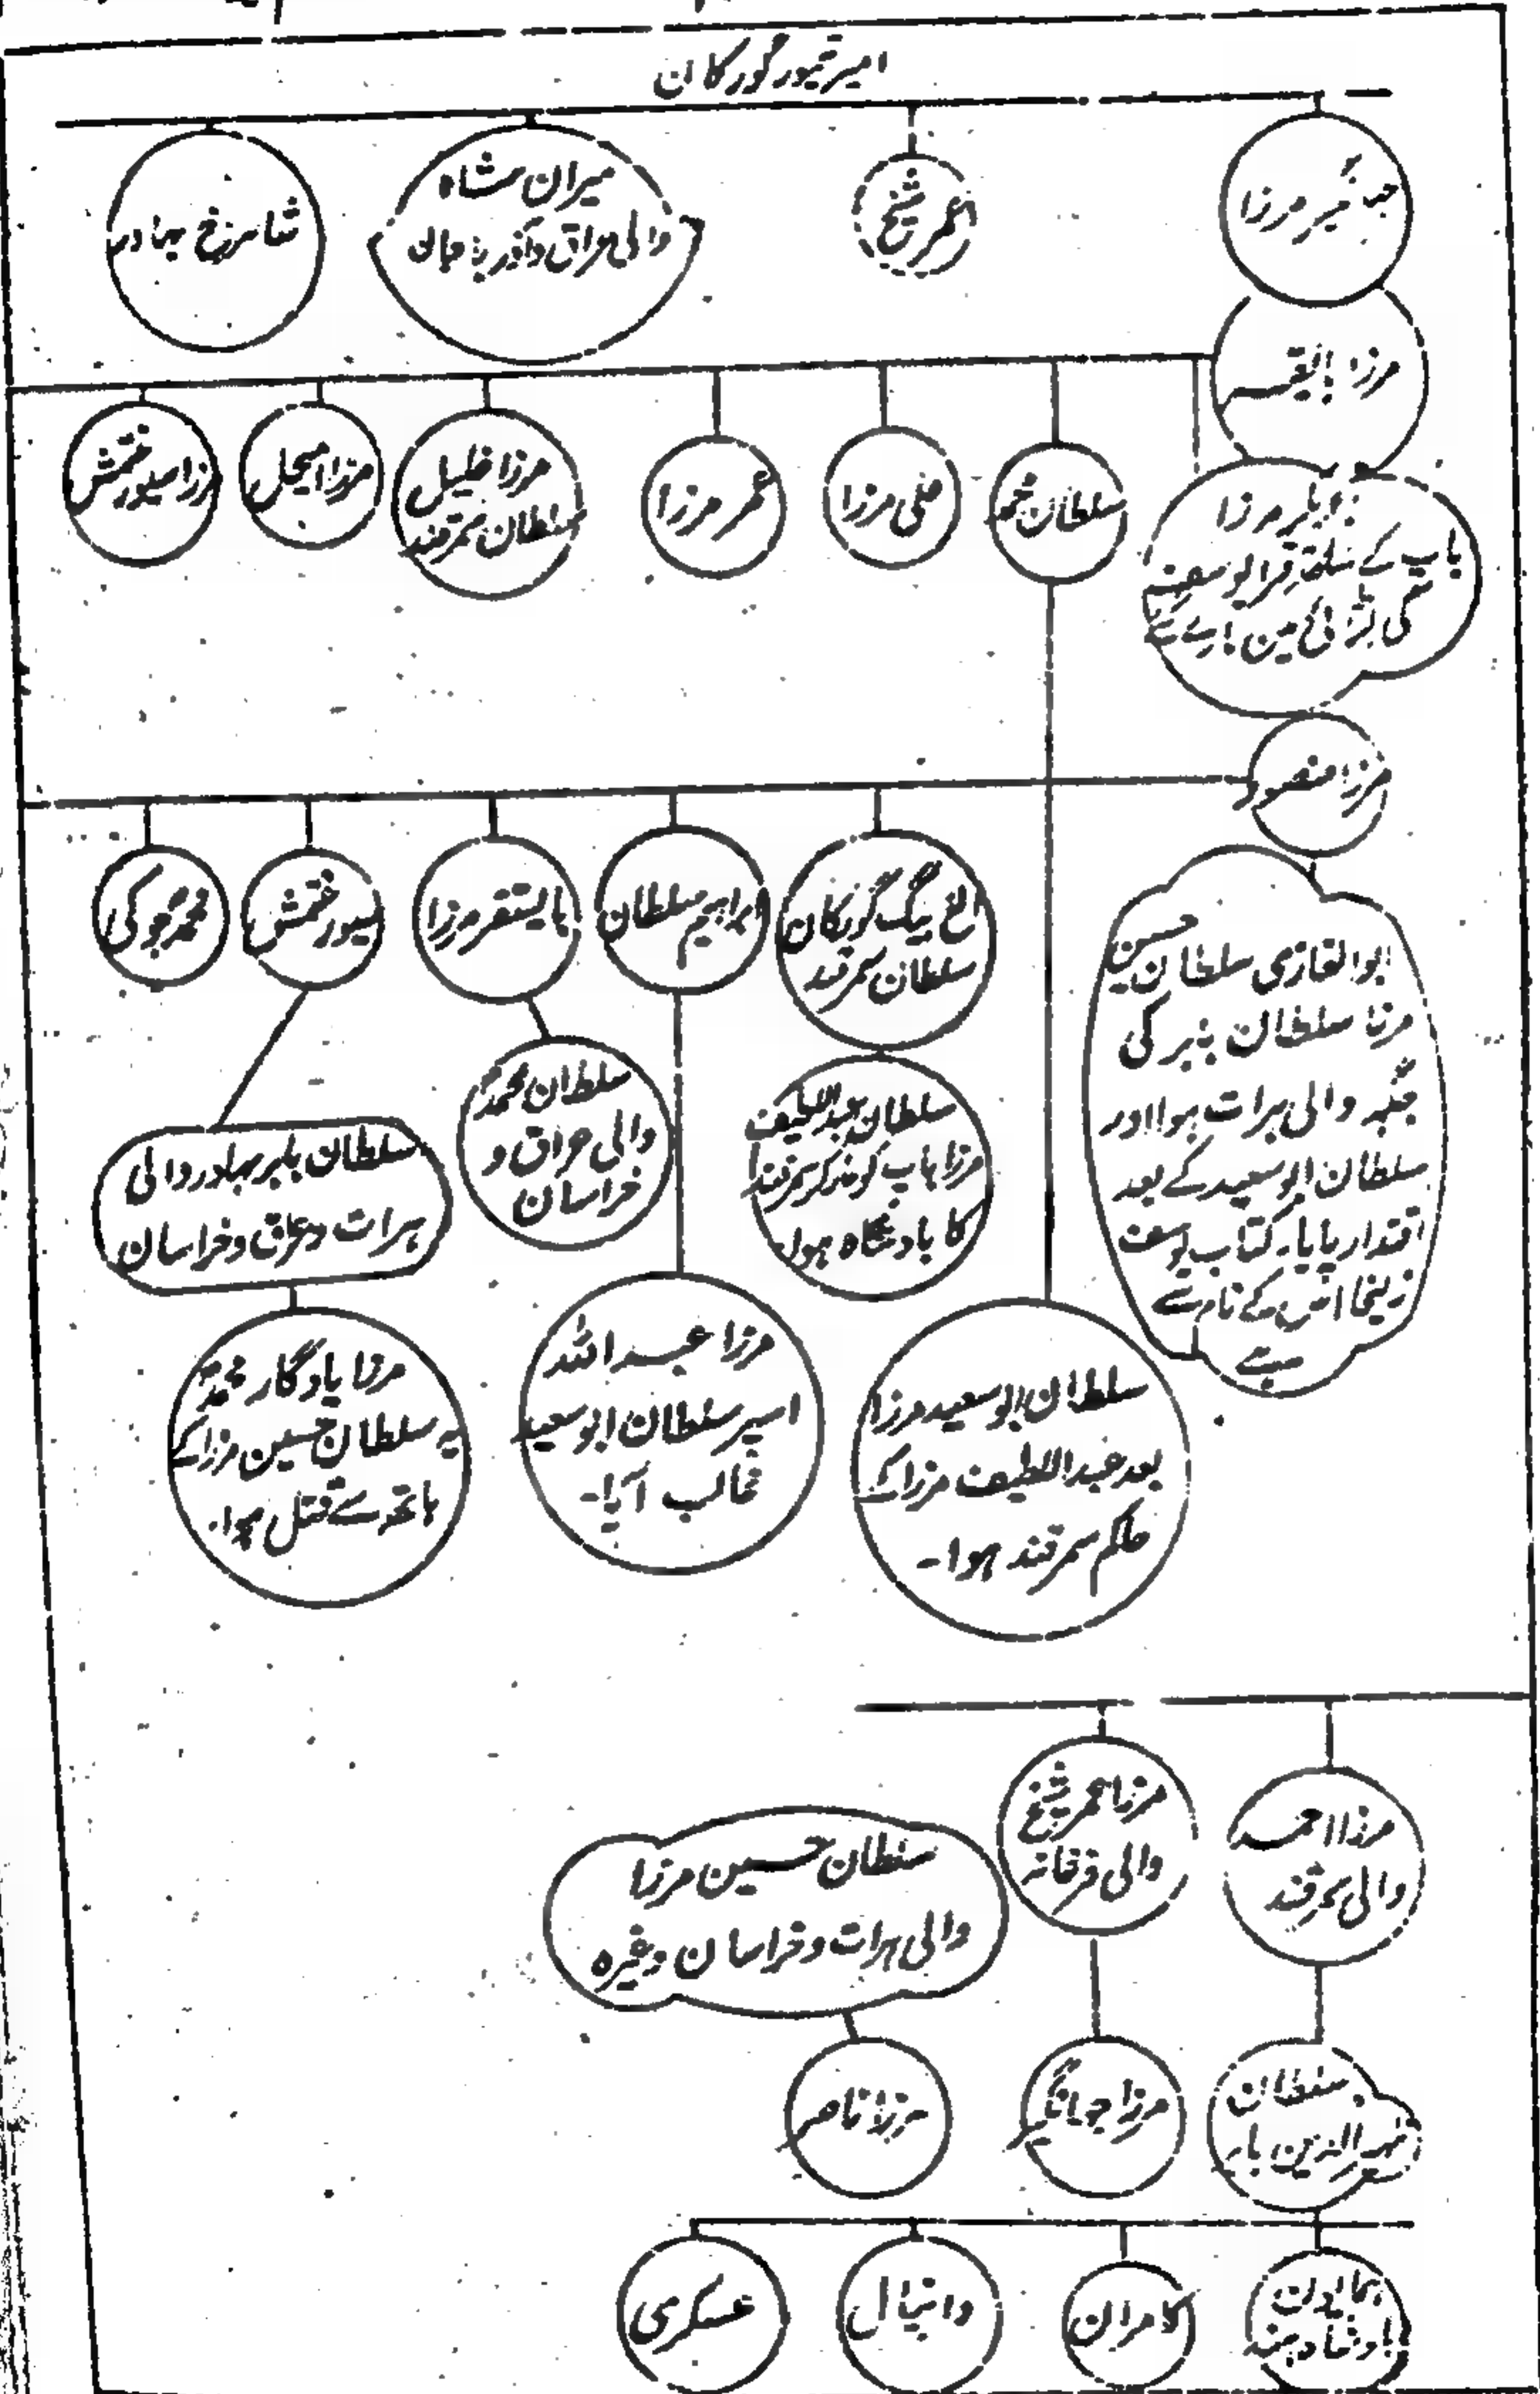 امیر تیمور گورکان
جہانگیر مرزا
عمر شیخ
میران شاہ
والی عراق و آذربائجان
شاہرخ بہادر
مرزا بایقرہ
مرزا
باپ کے ساتھ قرا یوسف
کی لڑائی مین مارے گئے
سلطان محمد
علی مرزا
عمر مرزا
مرزا خلیل
سلطان سمرقند
مرزا ایجل
مرزا سیورغتمش
مرزا منصور
الغ بیگ گورکان
سلطان سمرقند
ابراہیم سلطان
بایسنقر مرزا
سیورغتمش
محمد جوکی
ابوالغازی سلطان حسین
مرزا سلطان بابر کی
جگہہ والی ہرات ہوا اور
سلطان ابوسعید کے بعد
اقتدار پایا۔ کتاب یوسف
زلیخا اس کے نام سے
ہے
سلطان عبداللطیف
مرزا باپ کو مار کر سمرقند
کا بادشاہ ہوا۔
سلطان محمد
والی عراق و
خراسان
سلطان بابر بہادر والی
ہرات و عراق و خراسان
سلطان ابوسعید مرزا
بعد عبداللطیف مرزا کے
حاکم سمرقند ہوا۔
مرزا عبداللہ
اسیر سلطان ابوسعید
غالب آیا۔
مرزا یادگار محمد
یہ سلطان حسین مرزا کے
ہاتھ سے قتل ہوا۔
مرزا احمد
والی سمرقند
مرزا عمر شیخ
والی فرغانہ
سلطان حسین مرزا
والی ہرات و خراسان وغیرہ
سلطان
ظہیر الدین بابر
مرزا جہانگیر
مرزا ناصر
ہمایون
بادشاہ ہند
کامران
دانیال
عسکری